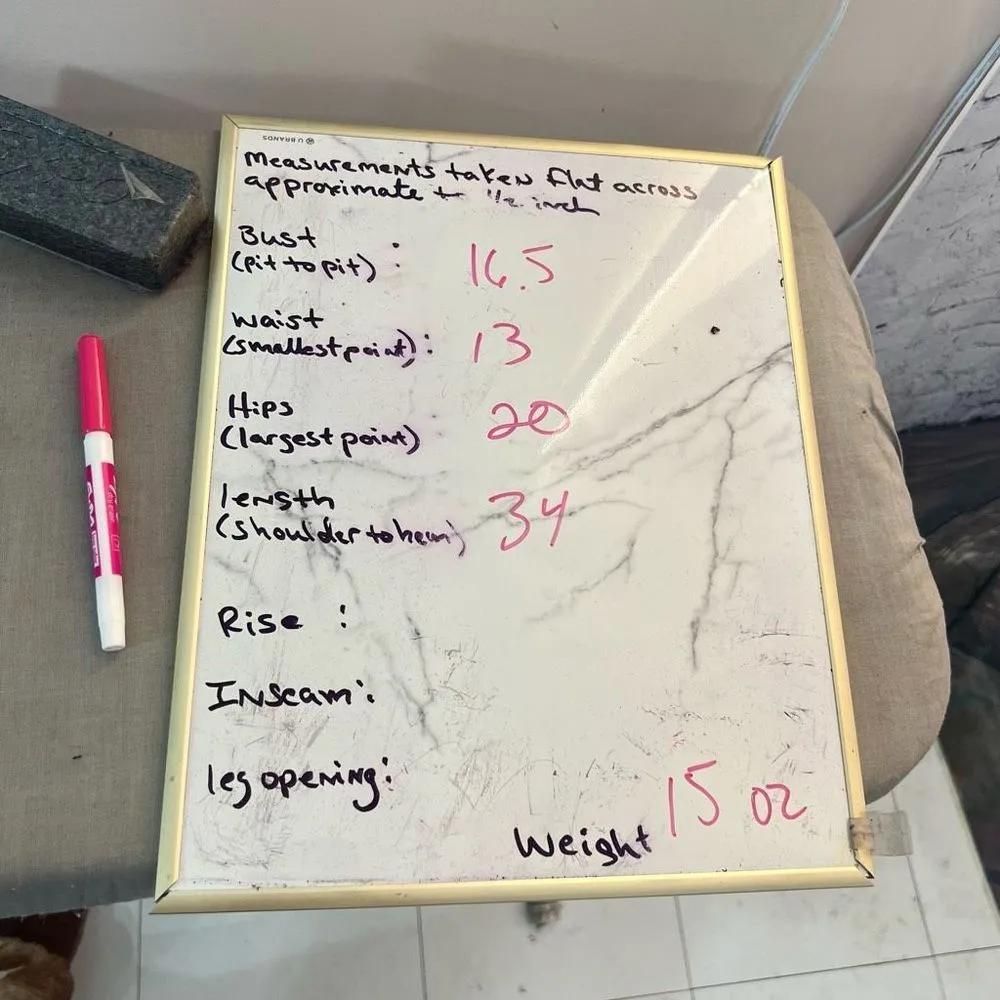 U BRANDS
Measurements taken flat across
approximate to 1/2 inch
Bust
(pit to pit) : 16.5
waist
(smallest point) : 13
Hips
(largest point) 20
length
(shoulder to hem) 34
Rise :
Inseam :
leg opening :
Weight 15 oz
EXPO